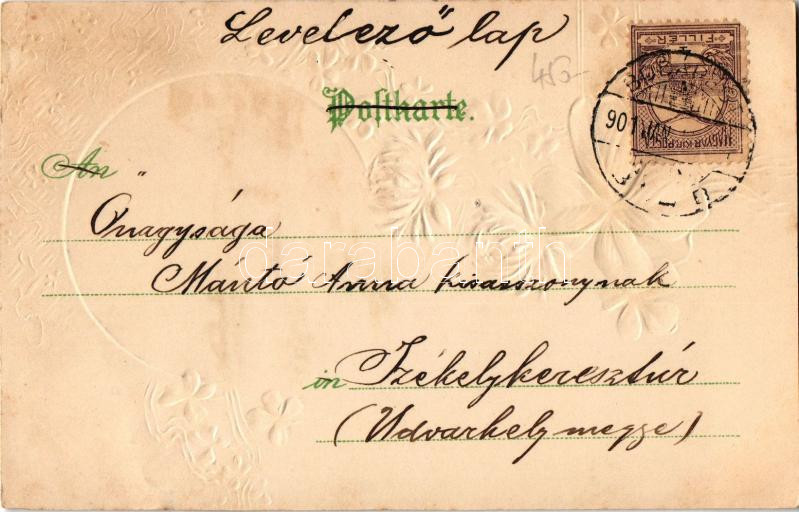 Levelező lap
Postkarte.
450-
FILLÉR
MAGYAR KIR. POSTA
901
An
Őnagysága
Mantó Anna kisasszonynak
darabanth
in Székelykeresztúr
(Udvarhely megye)